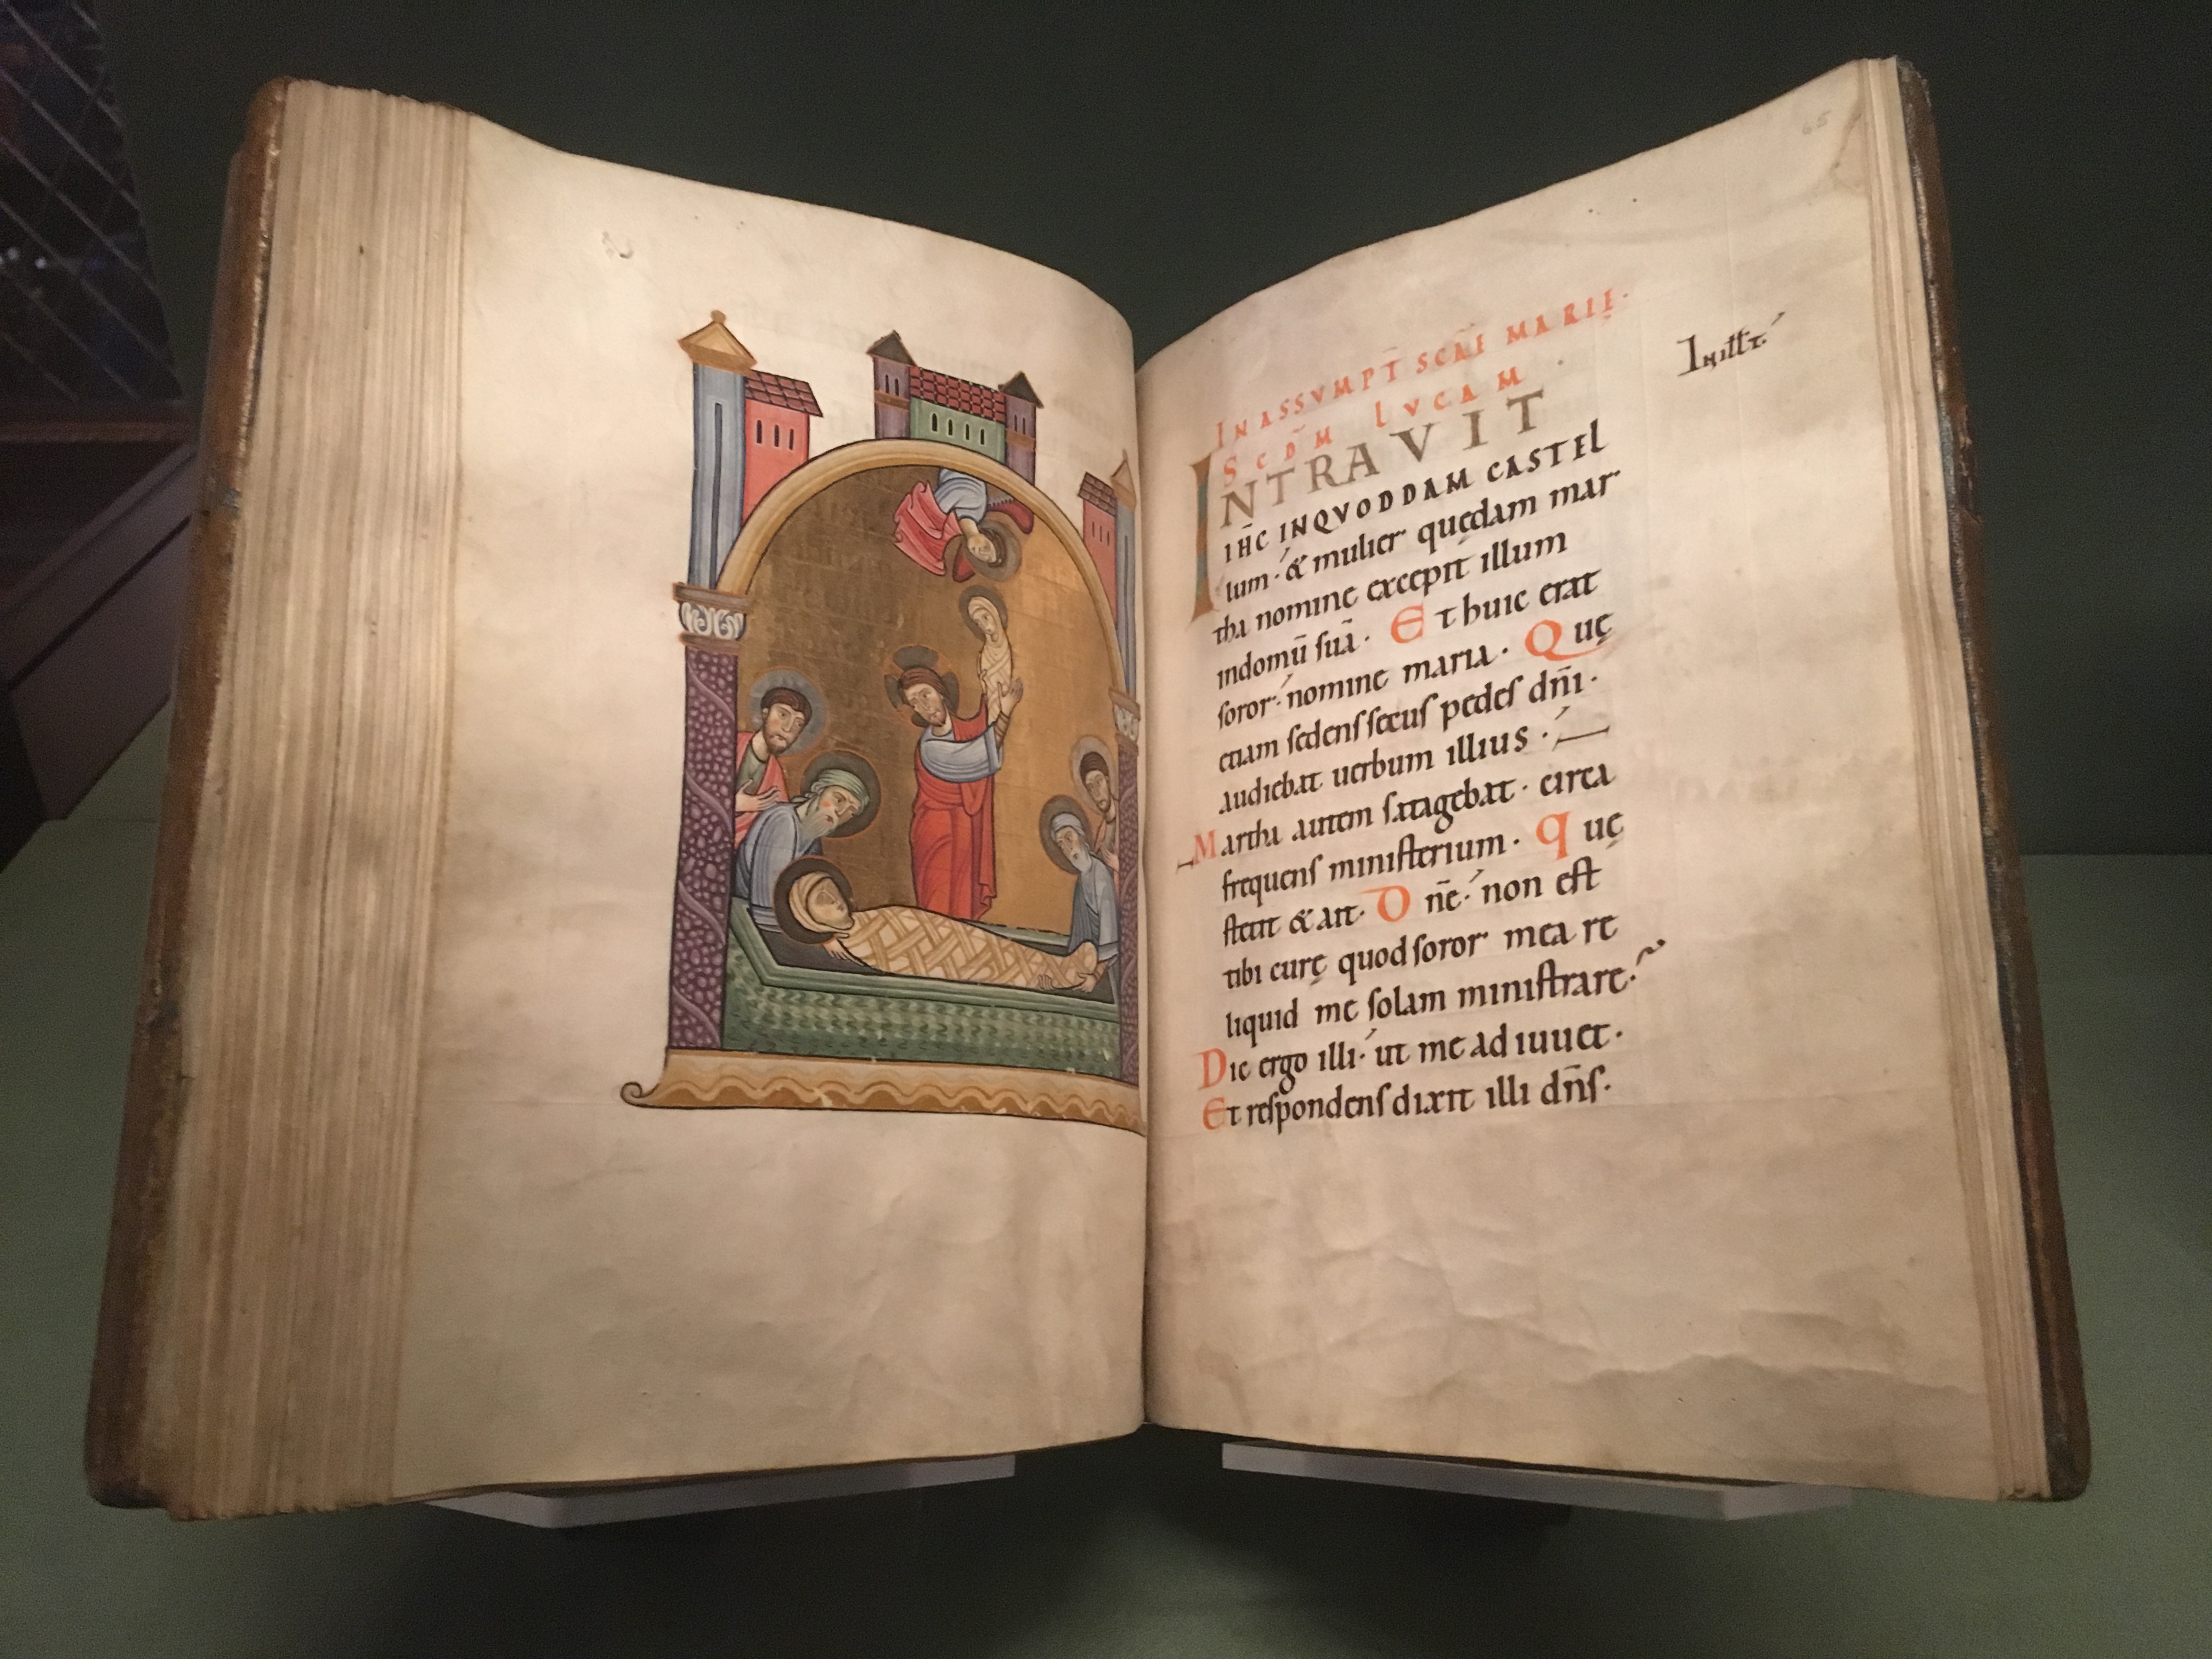 65
IN ASSVMPT̄ SCĀE MARIĘ·
SCD̄M LVCAM
INTRAVIT
Initt̄
IH̄C INQVODDAM CASTEL
lum·́ & mulier quędam mar
tha nomine excepit illum
indomū ſuā· Et huic erat
ſoror·́ nomine maria· Quę
etiam ſedenſſecus pedeſ dn̄i·
audiebat uerbum illius·
Martha autem ſatagebat· circa
frequenſ miniſterium· quę
ſtetit & ait· Dn̄e·́ non eſt
tibi curę quod ſoror mea re
liquid me ſolam miniſtrare·
Dic ergo illi·́ ut me adiuuet·
Et reſpondenſ dixit illi dn̄ſ·